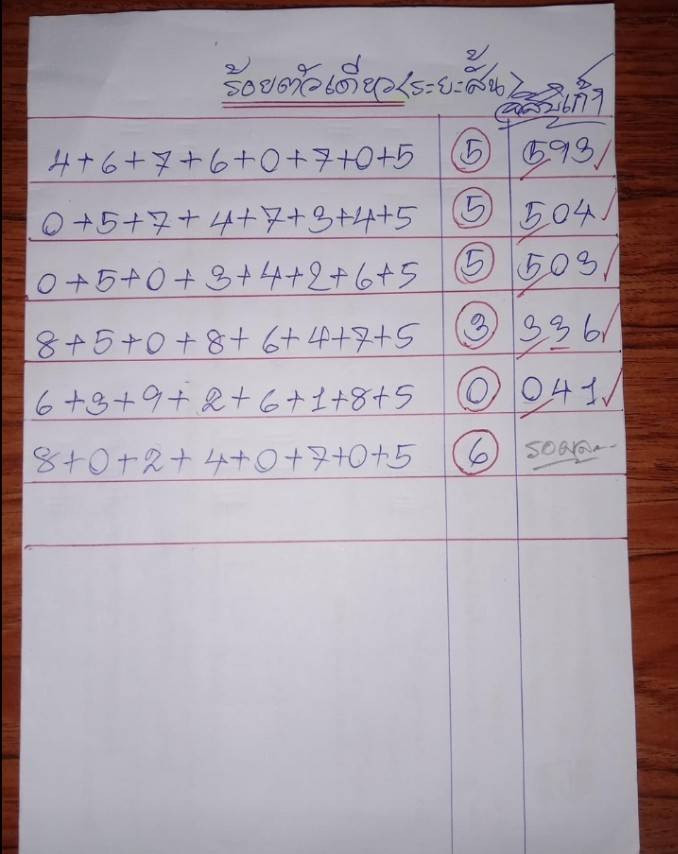 ร้อยตัวเดียว(ระยะสั้น)
4+6+7+6+0+7+0+5 5 593
0+5+7+4+7+3+4+5 5 504
0+5+0+3+4+2+6+5 5 503
8+5+0+8+6+4+7+5 3 336
6+3+9+2+6+1+8+5 0 041
8+0+2+4+0+7+0+5 6 รอผล...